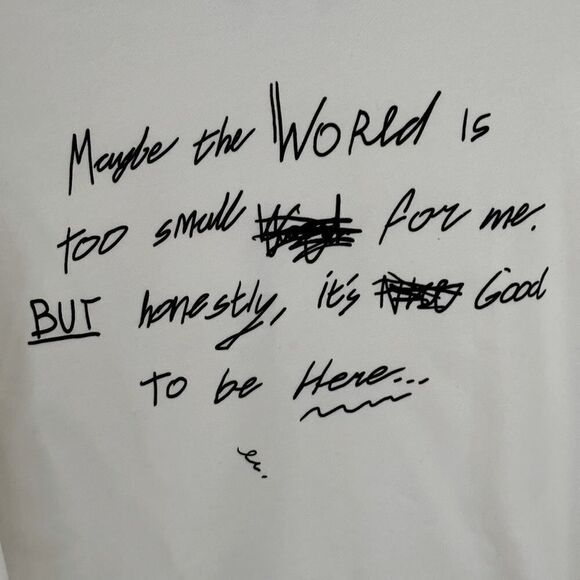 Maybe the WORld is
too small for me.
BUT honestly, it's Good
to be Here...